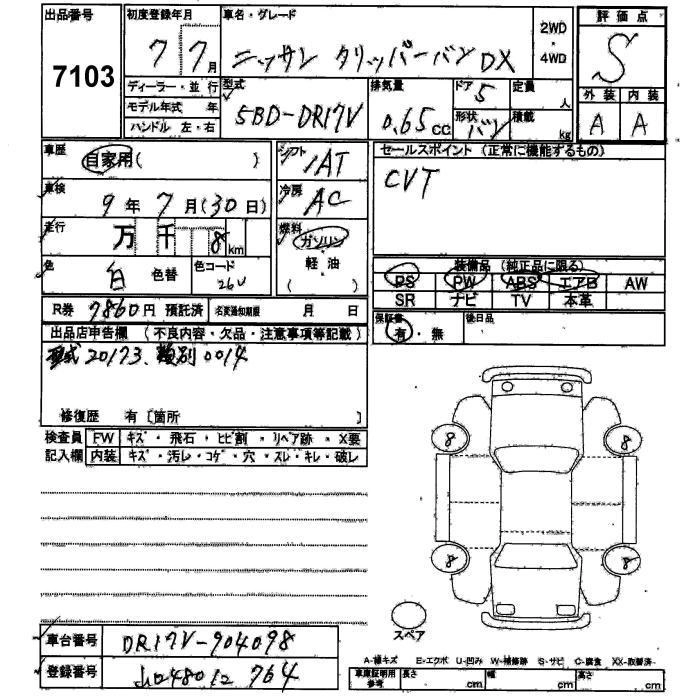 出品番号 7103
初度登録年月 7 7月
車名・グレード ニッサン クリッパーバン DX
2WD ・ 4WD
評価点 S
外装 A 内装 A
ディーラー・並行
モデル年式 年
ハンドル 左・右
型式 5BD-DR17V
排気量 0.65cc
ドア 5
形状 バン
定員 人
積載 kg
車歴 自家用( )
車検 9年7月(30日)
走行 万 千 8 km
色 白 色替
色コード 26U
シフト IAT
冷房 AC
燃料 ガソリン
軽・油
( )
セールスポイント (正常に機能するもの)
CVT
装備品 (純正品に限る)
PS PW ABS エアB AW
SR ナビ TV 本革
保証書 有・無
後日品
R券 7860円 預託済 名変通知期限 月 日
出品店申告欄 (不良内容・欠品・注意事項等記載)
型式 20173. 類別 0014
修復歴 有 [箇所 ]
検査員 FW キズ・飛石・ヒビ割・リペア跡・X要
記入欄 内装 キズ・汚レ・コゲ・穴・スレ・キレ・破レ
8 8
8 8
スペア
車台番号 DR17V-904098
登録番号 764
A-線キズ E-エクボ U-凹み W-補修跡 S-サビ C-腐食 XX-取替済
車庫証明用参考 長さ cm 幅 cm 高さ cm